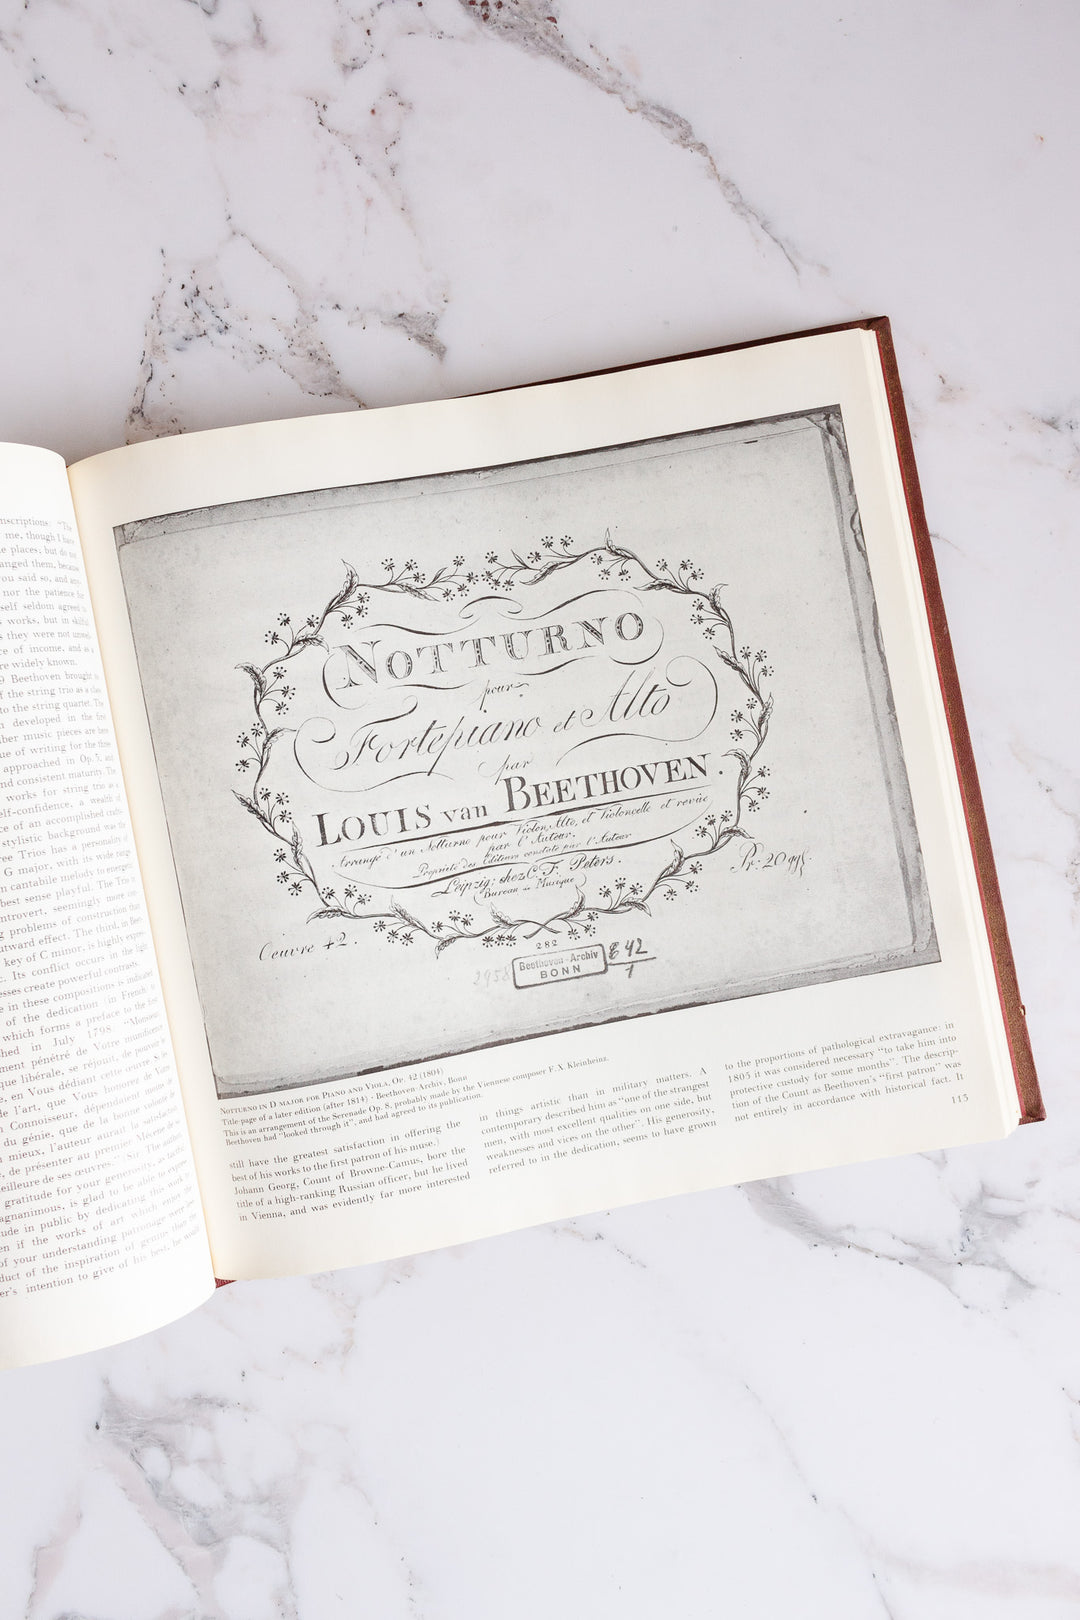 nscriptions: "The
me, though I have
e places; but do not
anged them, because
ou said so, and any-
nor the patience for
self seldom agreed to
works, but in skilful
s they were not unwel-
ce of income, and as a
re widely known.
9 Beethoven brought
f the string trio as a class
to the string quartet. The
n developed in the first
ber music pieces are there
ue of writing for the three
approached in Op. 3, and
nd consistent maturity. The
works for string trio
elf-confidence, a wealth of
ce of an accomplished
stylistic background was the
ree Trios has a personality of
G major, with its wide range
n cantabile melody to energetic
best sense playful. The Trio in
introvert, seemingly more
g problems of construction than
utward effect. The third, in Beet-
key of C minor, is highly
c. Its conflict occurs in the light
esses create powerful contrasts.
e in these compositions is indicated
of the dedication (in French,
which forms a preface to the first
hed in July 1798. "Monsieur,
ment pénétré de Votre munificence
que libérale, se réjouit, de pouvoir le
e, en Vous dédiant cette œuvre. Si
le l'art, que Vous honorez de Votre
Connoisseur, dépendaient
du génie, que de la bonne volonté de
mieux, l'auteur aurait la satisfaction
de présenter au premier Mécène de sa
eilleure de ses œuvres." "Sir, The author,
gratitude for your generosity, as tasteful
agnanimous, is glad to be able to express
ude in public by dedicating this work
en if the works of art which enjoy the
of your understanding patronage were
duct of the inspiration of genius than the
er's intention to give of his best, he would
NOTTURNO
pour
Fortepiano et Alto
par
LOUIS van BEETHOVEN.
Arrangé d'un Notturno pour Violon, Alto, et Violoncelle et revüe
par l'Auteur.
Propriété des Editeurs constate par l'Auteur
Leipzig: chez C. F. Peters.
Bureau de Musique
Pr. 20 ggr.
Oeuvre 42.
282
2958
Beethoven-Archiv
BONN
C 42
1
NOTTURNO IN D MAJOR FOR PIANO AND VIOLA, OP. 42 (1804)
Title-page of a later edition (after 1814) · Beethoven-Archiv, Bonn
This is an arrangement of the Serenade Op. 8, probably made by the Viennese composer F. X. Kleinheinz.
Beethoven had "looked through it", and had agreed to its publication.
still have the greatest satisfaction in offering the
best of his works to the first patron of his muse.)
Johann Georg, Count of Browne-Camus, bore the
title of a high-ranking Russian officer, but he lived
in Vienna, and was evidently far more interested
in things artistic than in military matters. A
contemporary described him as "one of the strangest
men, with most excellent qualities on one side, but
weaknesses and vices on the other". His generosity,
referred to in the dedication, seems to have grown
to the proportions of pathological extravagance: in
1805 it was considered necessary "to take him into
protective custody for some months". The descrip-
tion of the Count as Beethoven's "first patron" was
not entirely in accordance with historical fact. It
113